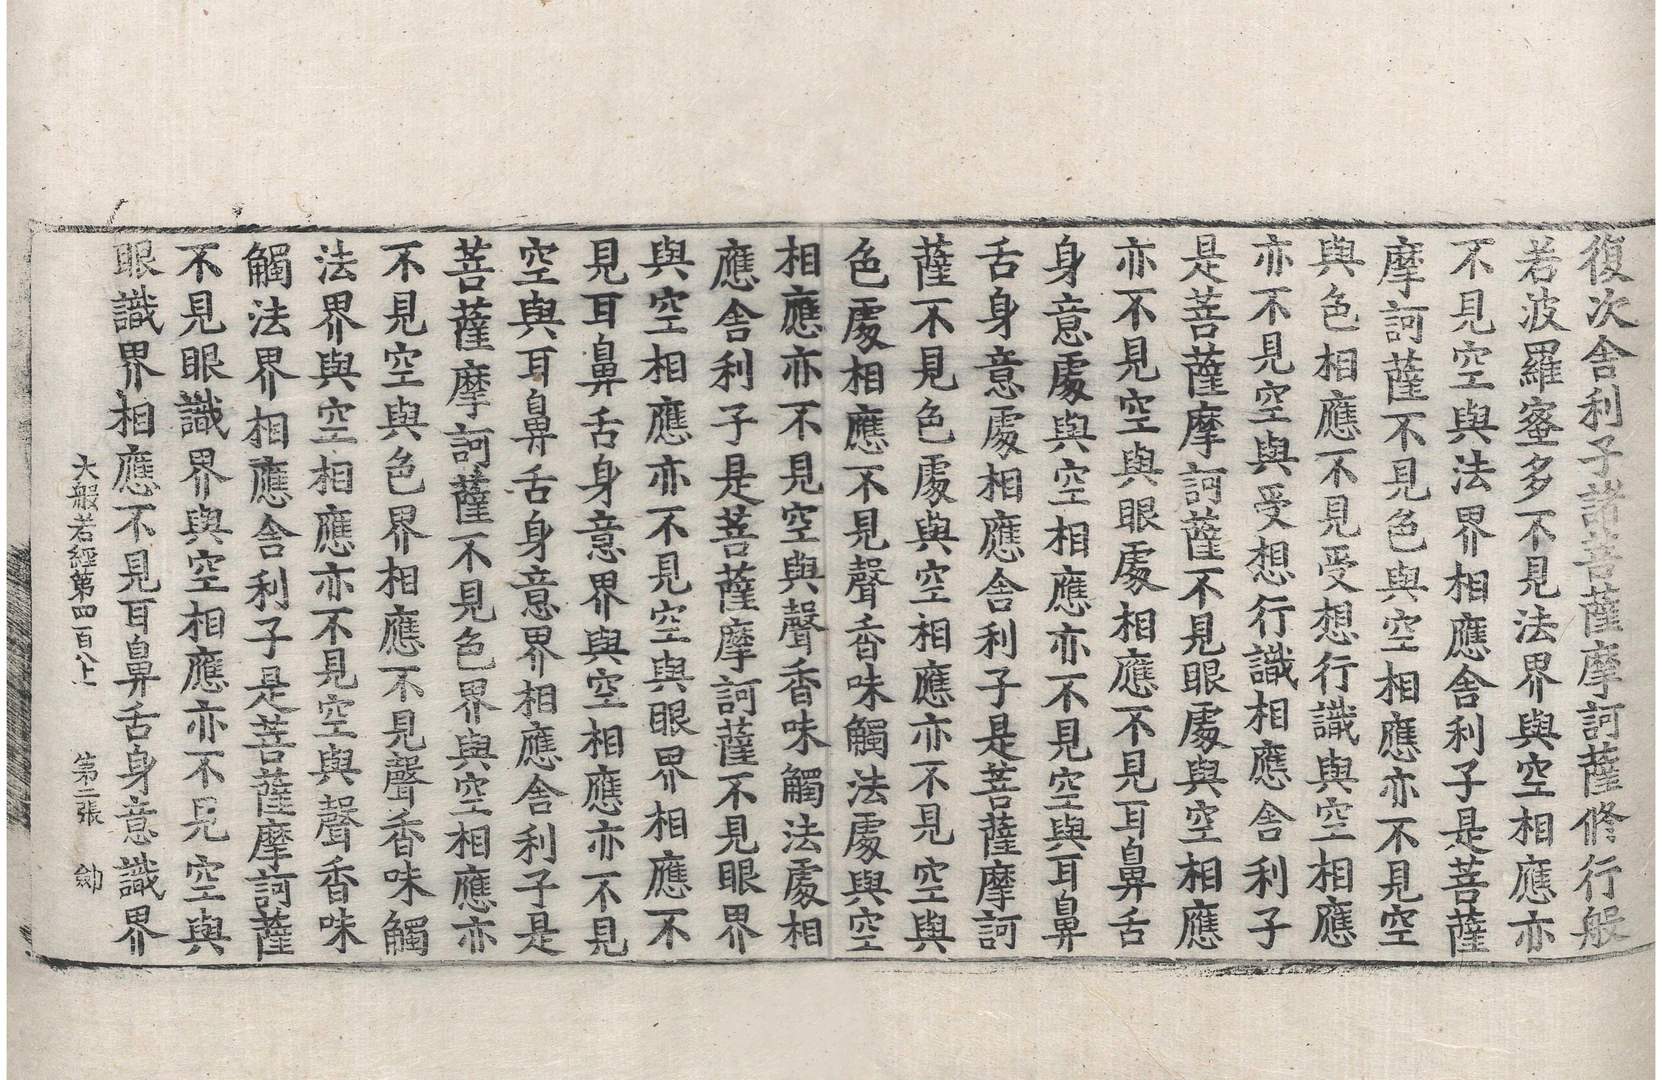 復次舍利子諸菩薩摩訶薩修行般
若波羅蜜多不見法界與空相應亦
不見空與法界相應舍利子是菩薩
摩訶薩不見色與空相應亦不見空
與色相應不見受想行識與空相應
亦不見空與受想行識相應舍利子
是菩薩摩訶薩不見眼處與空相應
亦不見空與眼處相應不見耳鼻舌
身意處與空相應亦不見空與耳鼻
舌身意處相應舍利子是菩薩摩訶
薩不見色處與空相應亦不見空與
色處相應不見聲香味觸法處與空
相應亦不見空與聲香味觸法處相
應舍利子是菩薩摩訶薩不見眼界
與空相應亦不見空與眼界相應不
見耳鼻舌身意界與空相應亦不見
空與耳鼻舌身意界相應舍利子是
菩薩摩訶薩不見色界與空相應亦
不見空與色界相應不見聲香味觸
法界與空相應亦不見空與聲香味
觸法界相應舍利子是菩薩摩訶薩
不見眼識界與空相應亦不見空與
眼識界相應不見耳鼻舌身意識界
大般若經第四百八上 第二張 劒